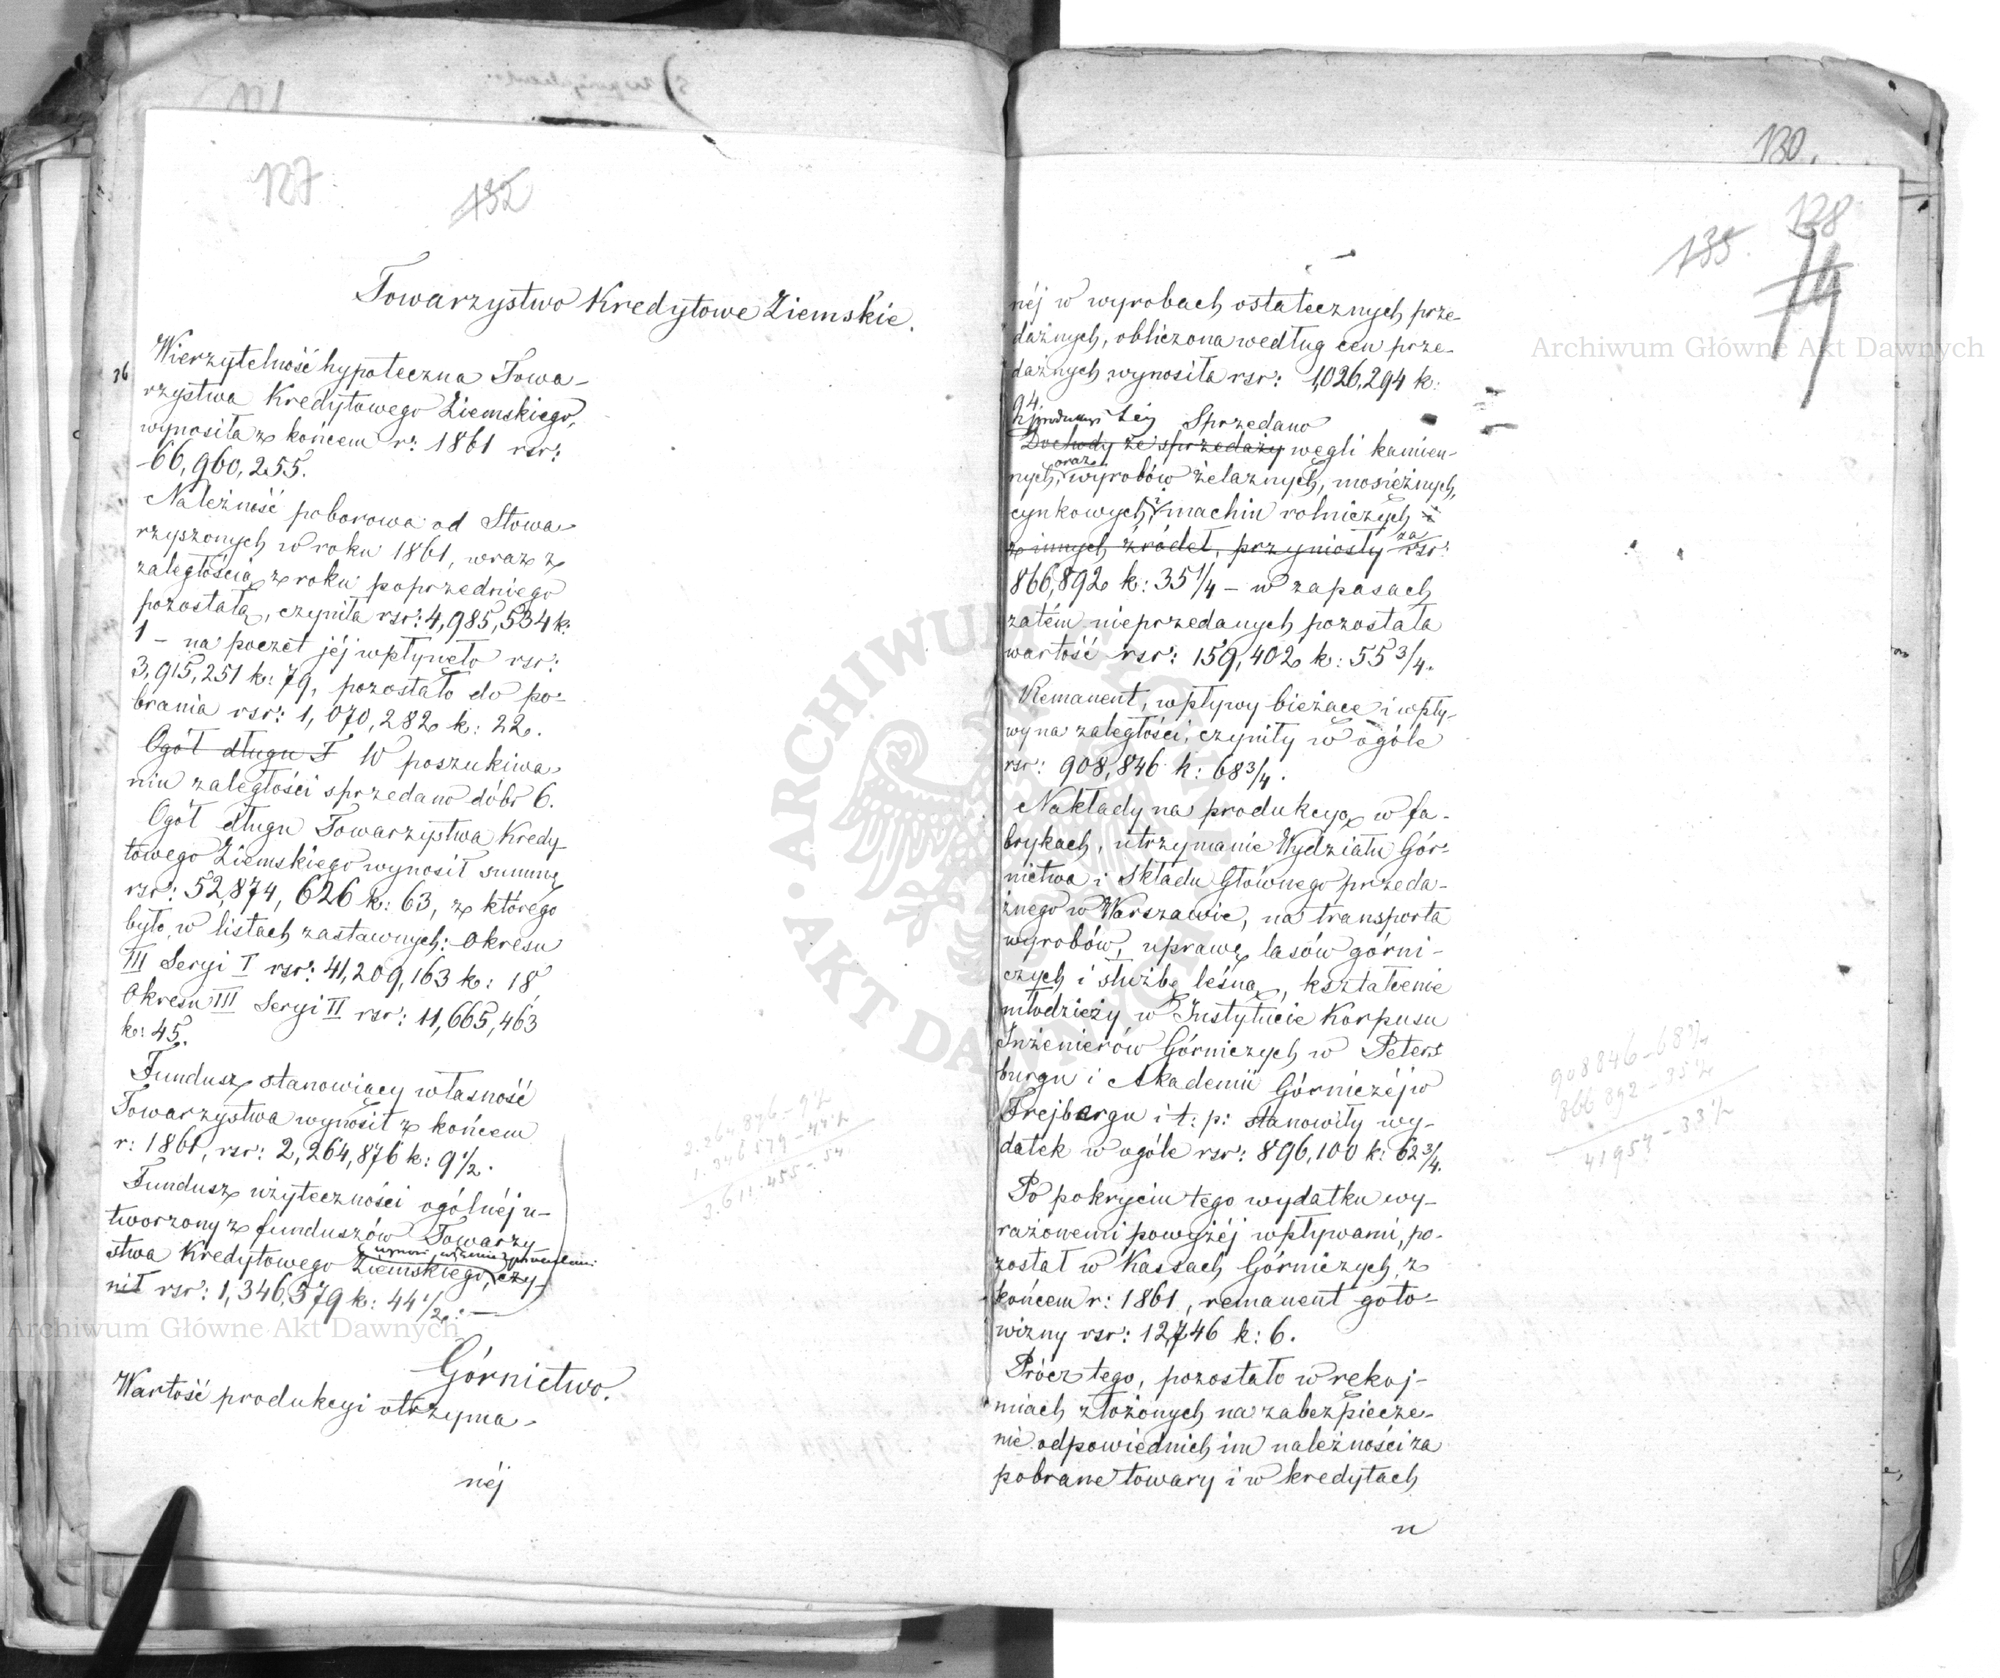 127
132
Towarzystwo Kredytowe Ziemskie.
36
Wierzytelność hypoteczna Towa-
rzystwa Kredytowego Ziemskiego,
wynosiła z końcem r: 1861 rsr:
66,960,255.
Należność poborowa od Stowa-
rzyszonych w roku 1861, wraz z
zaległością z roku poprzedniego
pozostałą, czyniła rsr: 4,985,534 k:
1 – na poczet jéj wpłynęło rsr:
3,915,251 k: 79, pozostało do po-
brania rsr: 1,070,282 k: 22.
Ogół długu T W poszukiwa-
niu zaległości sprzedano dóbr 6.
Ogół długu Towarzystwa Kredy-
towego Ziemskiego wynosił summę
rsr: 52,874,626 k: 63, z którego
było w listach zastawnych: Okresu
III Seryi I rsr: 41,209,163 k: 18
Okresu III Seryi II rsr: 11,665,463
k: 45.
Fundusz stanowiący własność
Towarzystwa wynosił z końcem
r: 1861, rsr: 2,264,876 k: 9 1/2.
Fundusz użyteczności ogólnéj u-
tworzony z funduszów Towarzy-
stwa Kredytowego Ziemskiego, czy-
nił rsr: 1,346,579 k: 44 1/2. –
2.264876 – 9 1/2
1.346579 – 44 1/2
3.611.455 – 54
Górnictwo.
Wartość produkcyi otrzyma-
néj
130.
128
135.
néj w wyrobach ostatecznych prze-
dażnych, obliczona według cen prze-
dażnych wynosiła rsr: 1,026,294 k:
94.
Z produkcyi téj Sprzedano
Dochody ze sprzedaży węgli kamien-
oraz
nych, wyrobów żelaznych, mosiężnych,
i
cynkowych, machin rolniczych i
za
z innych źródeł, przyniosły rsr:
866,892 k: 35 1/4 – w zapasach
zatém nieprzedanych pozostała
wartość rsr: 159,402 k: 55 3/4.
Remanent, wpływy bieżące i wpły-
wy na zaległości, czyniły w ogóle
rsr: 908,846 k: 68 3/4.
Nakłady na produkcyą w fa-
brykach, utrzymanie Wydziału Gór-
nictwa i Składu Głównego przeda-
żnego w Warszawie, na transporta
wyrobów, uprawę lasów górni-
czych i służbę leśną, kształcenie
młodzieży w Instytucie Korpusu
Inżenierów Górniczych w Peters
burgu i Akademii Górniczéj w
Frejbergu i t: p: stanowiły wy-
datek w ogóle rsr: 896,100 k: 62 3/4.
908846 – 68 3/4
866892 – 35 1/4
41953 – 33 1/2
Po pokryciu tego wydatku wy-
rażonemi powyżéj wpływami, po-
został w Kassach Górniczych z
końcem r: 1861, remanent goto-
wizny rsr: 12,746 k: 6.
Prócz tego, pozostało w rękoj-
miach złożonych na zabezpiecze-
nie odpowiednich im należności za
pobrane towary i w kredytach
u
Archiwum Główne Akt Dawnych
Archiwum Główne Akt Dawnych
ARCHIWUM GŁÓWNE AKT DAWNYCH